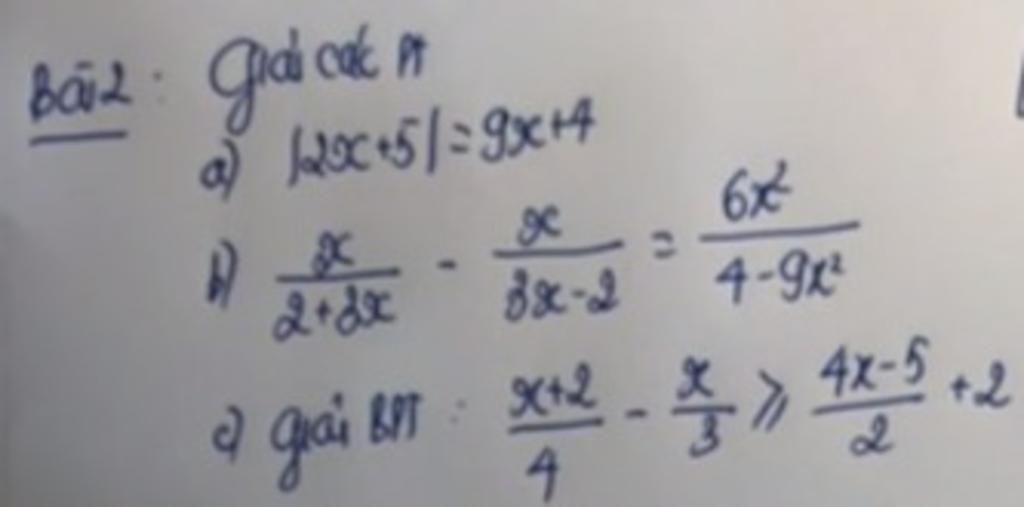 Bài 2 : Giải các PT
a) |2x+5| = 9x+4
b) x/(2+3x) - x/(3x-2) = 6x²/(4-9x²)
c) giải BPT : (x+2)/4 - x/3 ⩾ (4x-5)/2 + 2